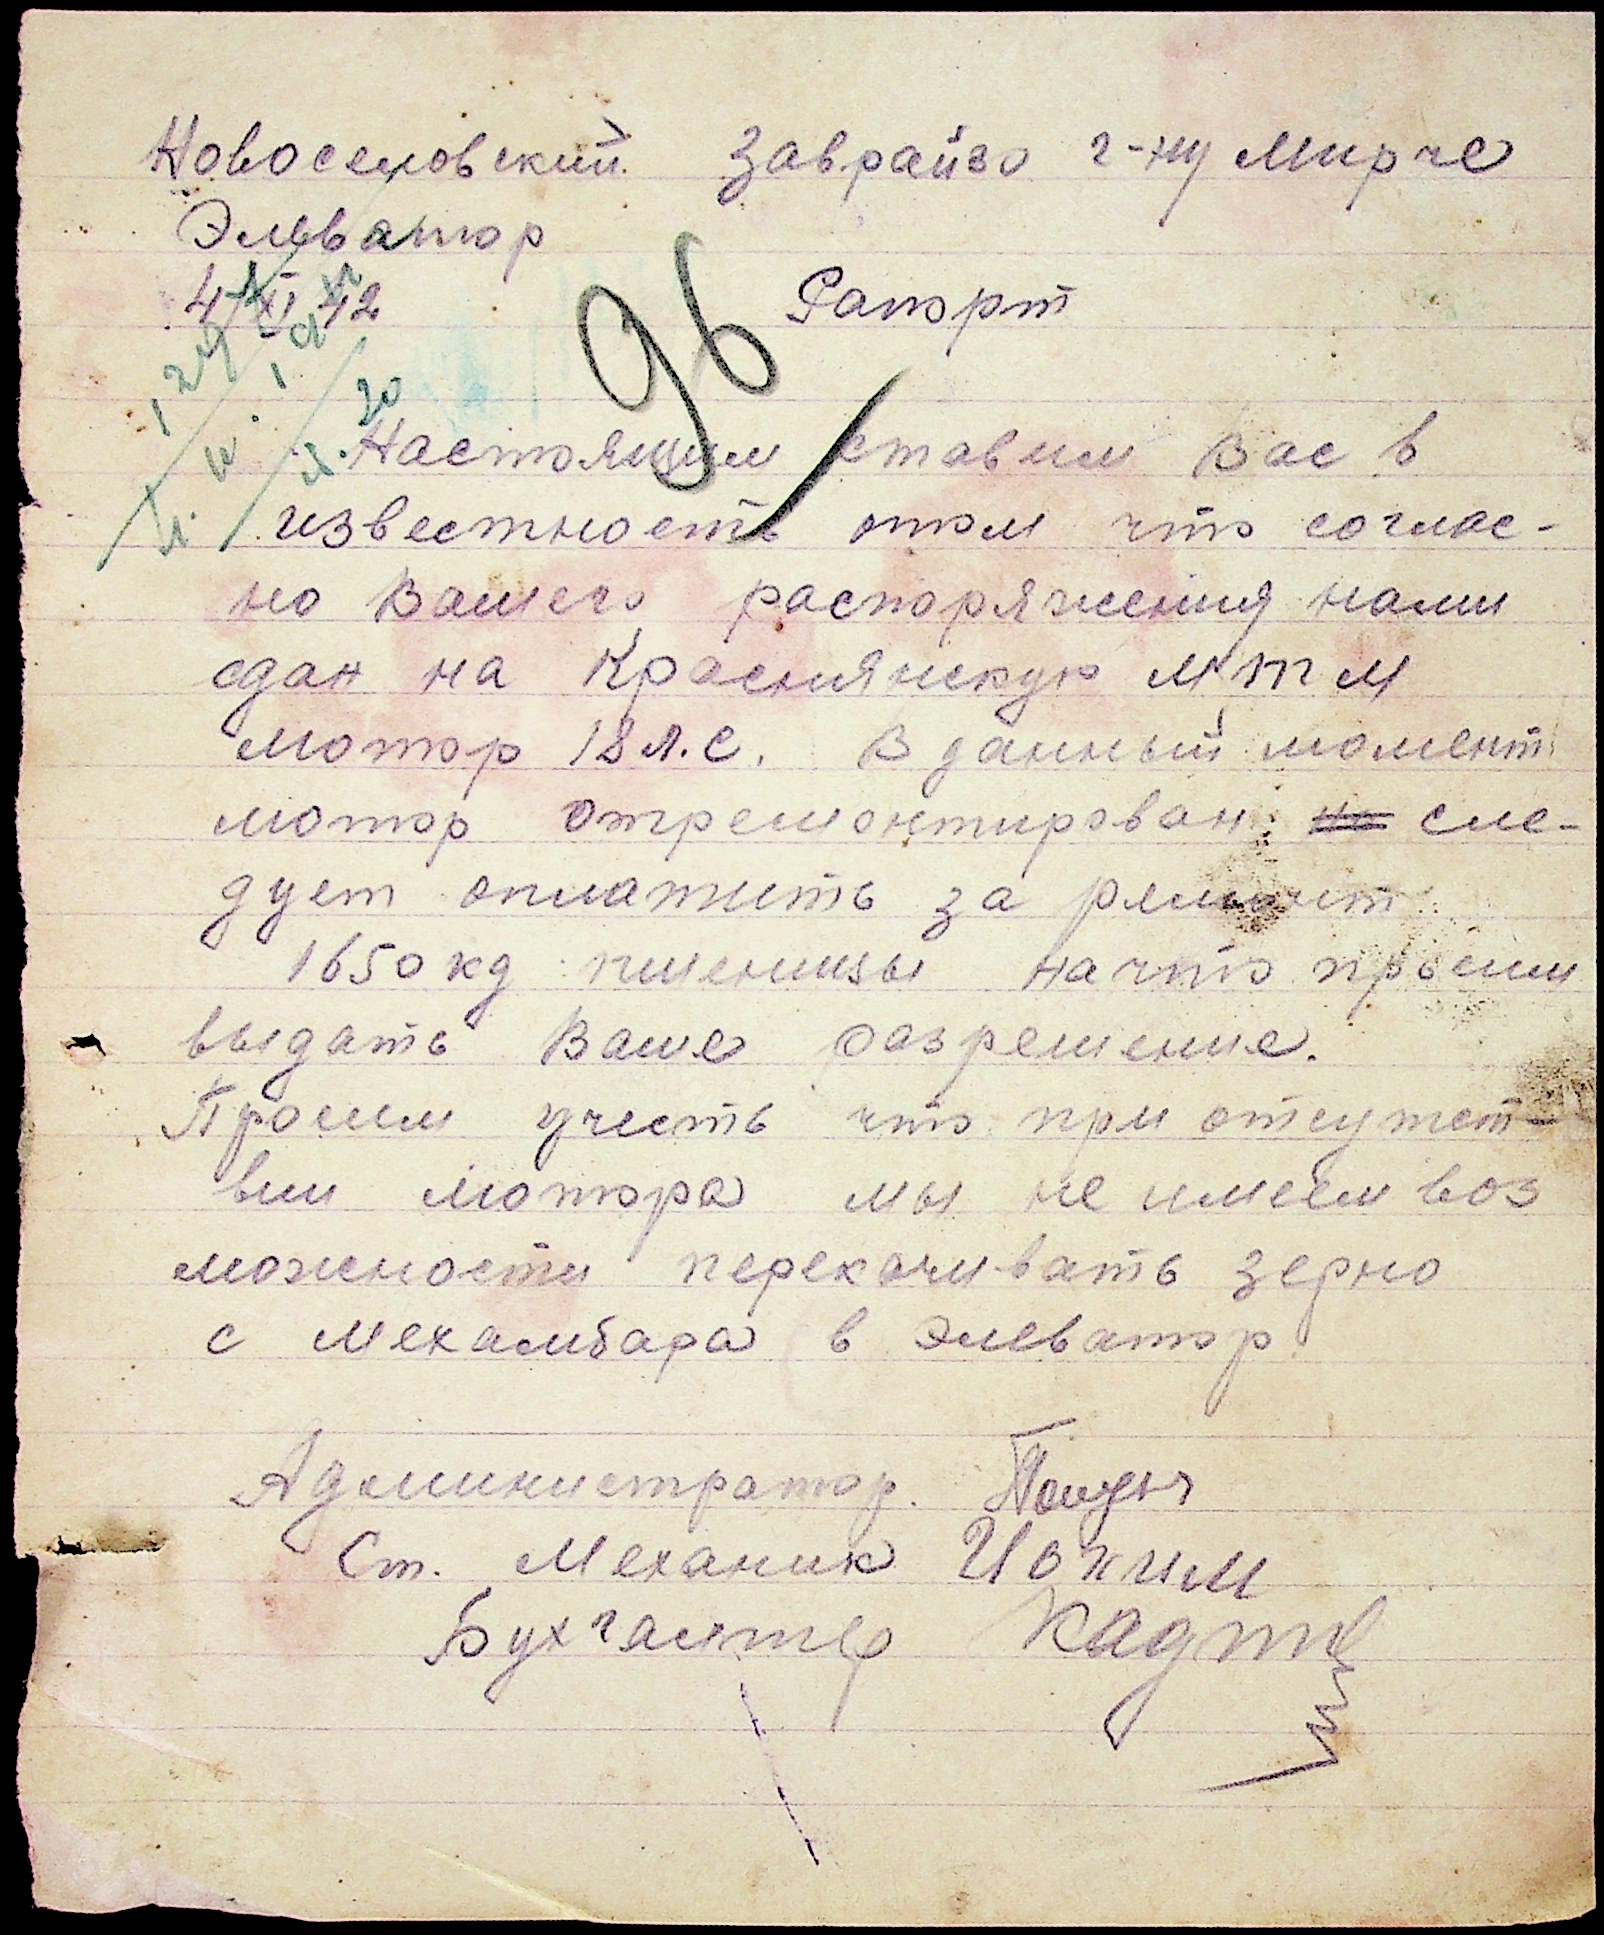 Новоселовский Заврайзо г-ну Мирче
Эльватор
4 XI 42
96
Рапорт
Настоящим ставим Вас в
известность отом что соглас-
но Вашего распоряжения нами
сдан на Краснянскую мтм
мотор 18 л.с. В данный момент
мотор отремонтирован. сле-
дует оплатить за ремонт
1650 кд пшеницы начто просим
выдать Ваше разрешение.
Просим учесть что при отсутст-
вии мотора мы не имеем воз
можности перекачивать зерно
с мехамбара в элеватор
Администратор.
Ст. Механик Иохим
Бухгалтер